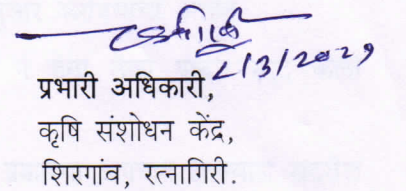 2/3/2021
प्रभारी अधिकारी,
कृषि संशोधन केंद्र,
शिरगांव, रत्नागिरी.